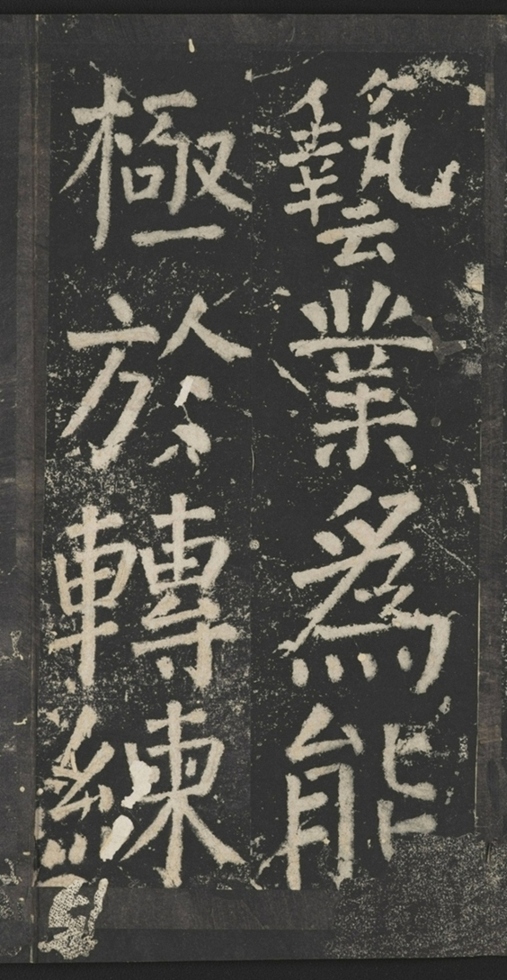 藝業爲能
極於轉練